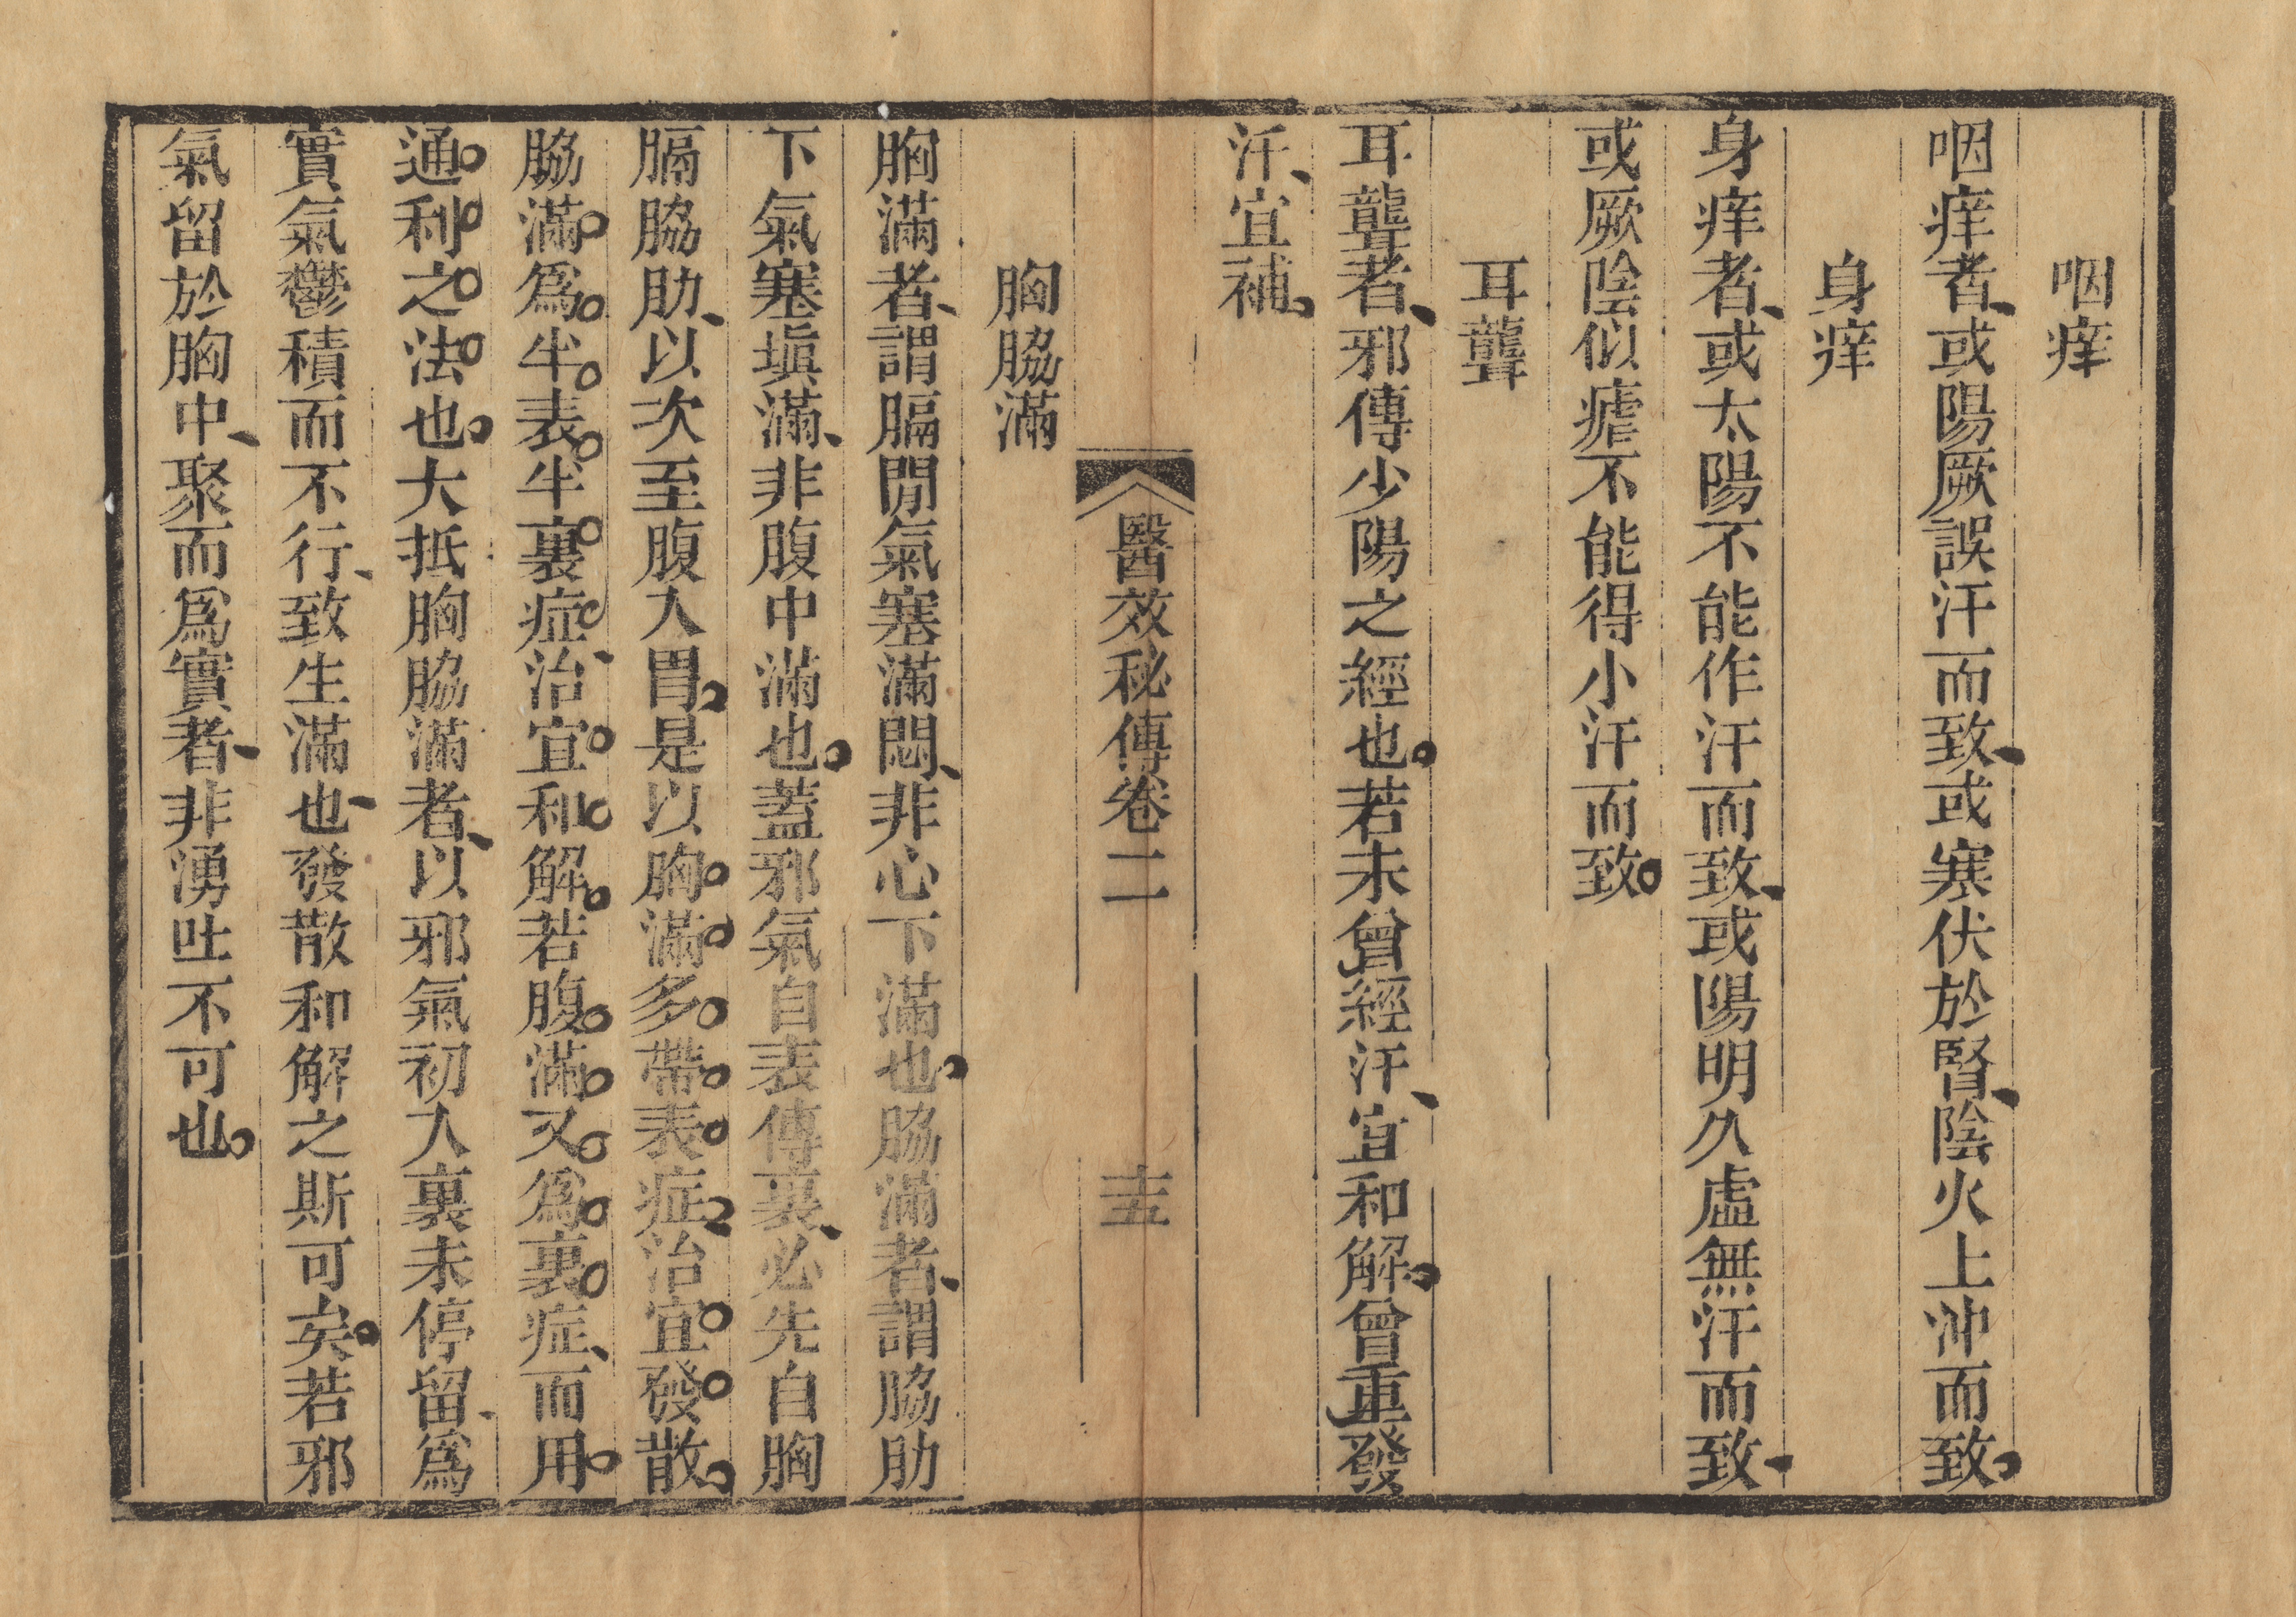 咽痒
咽痒者、或陽厥誤汗而致、或寒伏於腎、陰火上沖而致。
身痒
身痒者、或太陽不能作汗而致、或陽明久虛無汗而致、
或厥陰似瘧不能得小汗而致。
耳聾
耳聾者、邪傳少陽之經也。若未曾經汗、宜和解。曾重發
汗、宜補。
醫效秘傳卷二 十五
胸脇滿
胸滿者、謂膈間氣塞滿悶、非心下滿也。脇滿者、謂脇肋
下氣塞塡滿、非腹中滿也。蓋邪氣自表傳裏、必先自胸
膈脇肋、以次至腹入胃。是以胸滿多帶表症。治宜發散。
脇滿爲半表半裏症、治宜和解。若腹滿又爲裏症、而用
通利之法也。大抵胸脇滿者、以邪氣初入裏未停留、爲
實氣鬱積而不行、致生滿也、發散和解之斯可矣。若邪
氣留於胸中、聚而爲實者、非湧吐不可也。